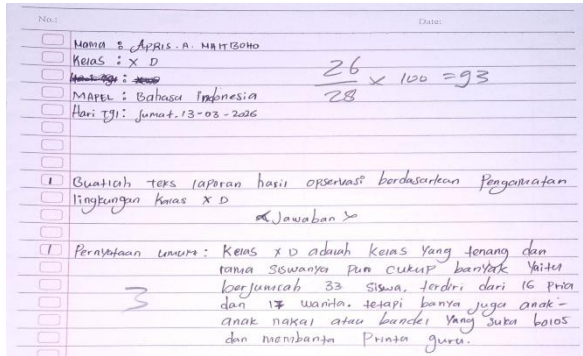 No.: Date:
Nama : APRIS. A. MAITBOHO
Kelas : X D
MAPEL : Bahasa indonesia
Hari Tgl : Jumat. 13 - 03 - 2026
26/28 x 100 = 93
1 Buatlah teks laporan hasil opservasi berdasarkan Pengamatan
lingkungan Kelas X D
< Jawaban >
1 Pernyataan umum : Kelas X D adalah kelas Yang tenang dan
rama siswanya Pun cukup banyak Yaitu
berjumlah 33 siswa. terdiri dari 16 Pria
dan 17 wanita. tetapi banya juga anak -
anak nakal atau bandel Yang suka bolos
dan membanta Printa guru.
3